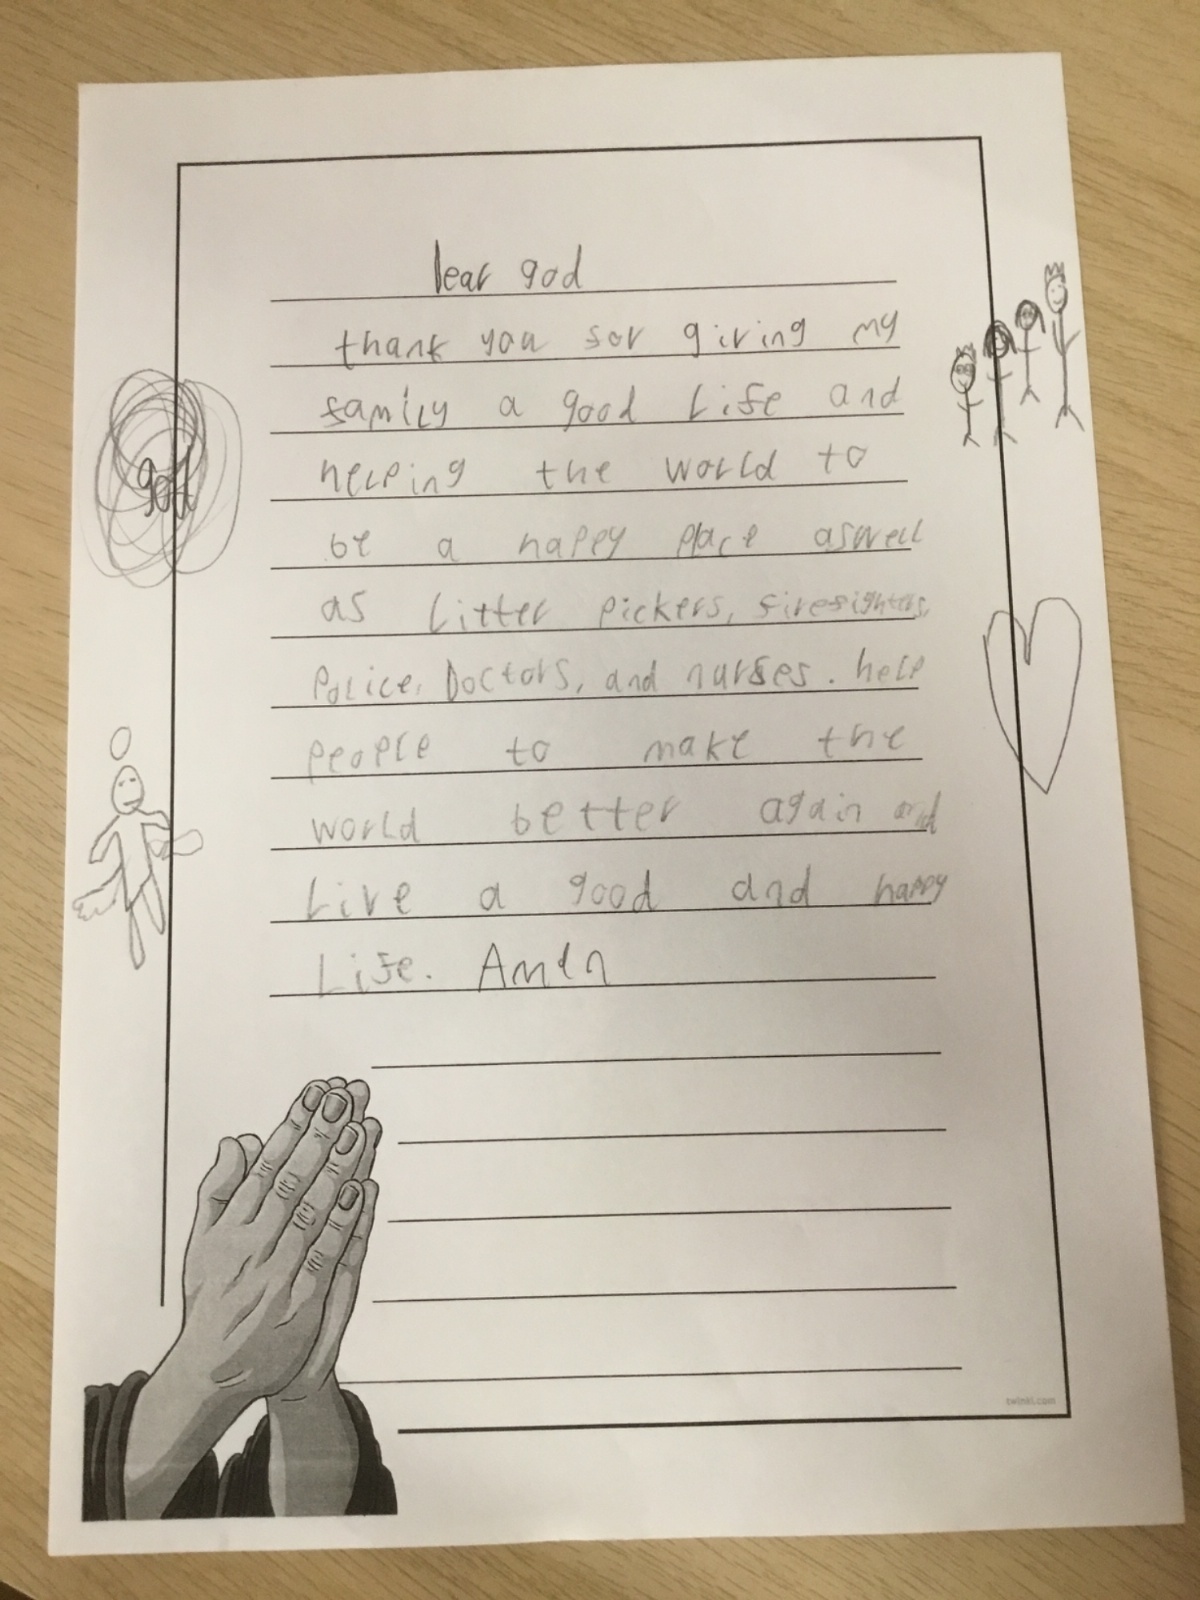 dear god
thank you for giving my
family a good Life and
helping the world to
be a happy place aswell
as Litter pickers, firefighters,
Police, Doctors, and nurses. help
people to make the
world better again and
Live a good and happy
Life. Amen
god
twinkl.com